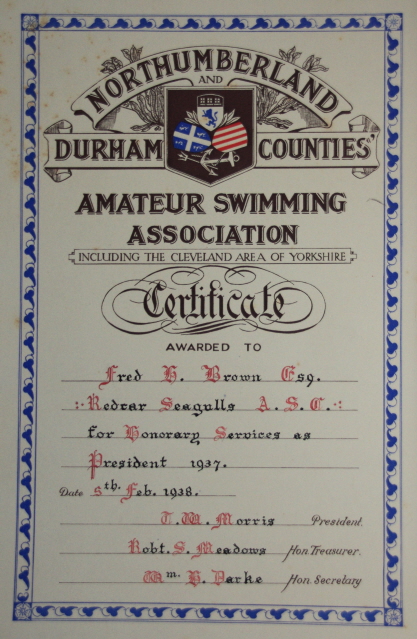 NORTHUMBERLAND
AND
DURHAM COUNTIES'
AMATEUR SWIMMING
ASSOCIATION
INCLUDING THE CLEVELAND AREA OF YORKSHIRE
Certificate
AWARDED TO
Fred H. Brown Esq.
Redcar Seagulls A.S.C.
for Honorary Services as
President 1937.
Date 5th. Feb. 1938.
T. W. Morris President.
Robt. S. Meadows Hon Treasurer.
Wm. H. Darke Hon. Secretary